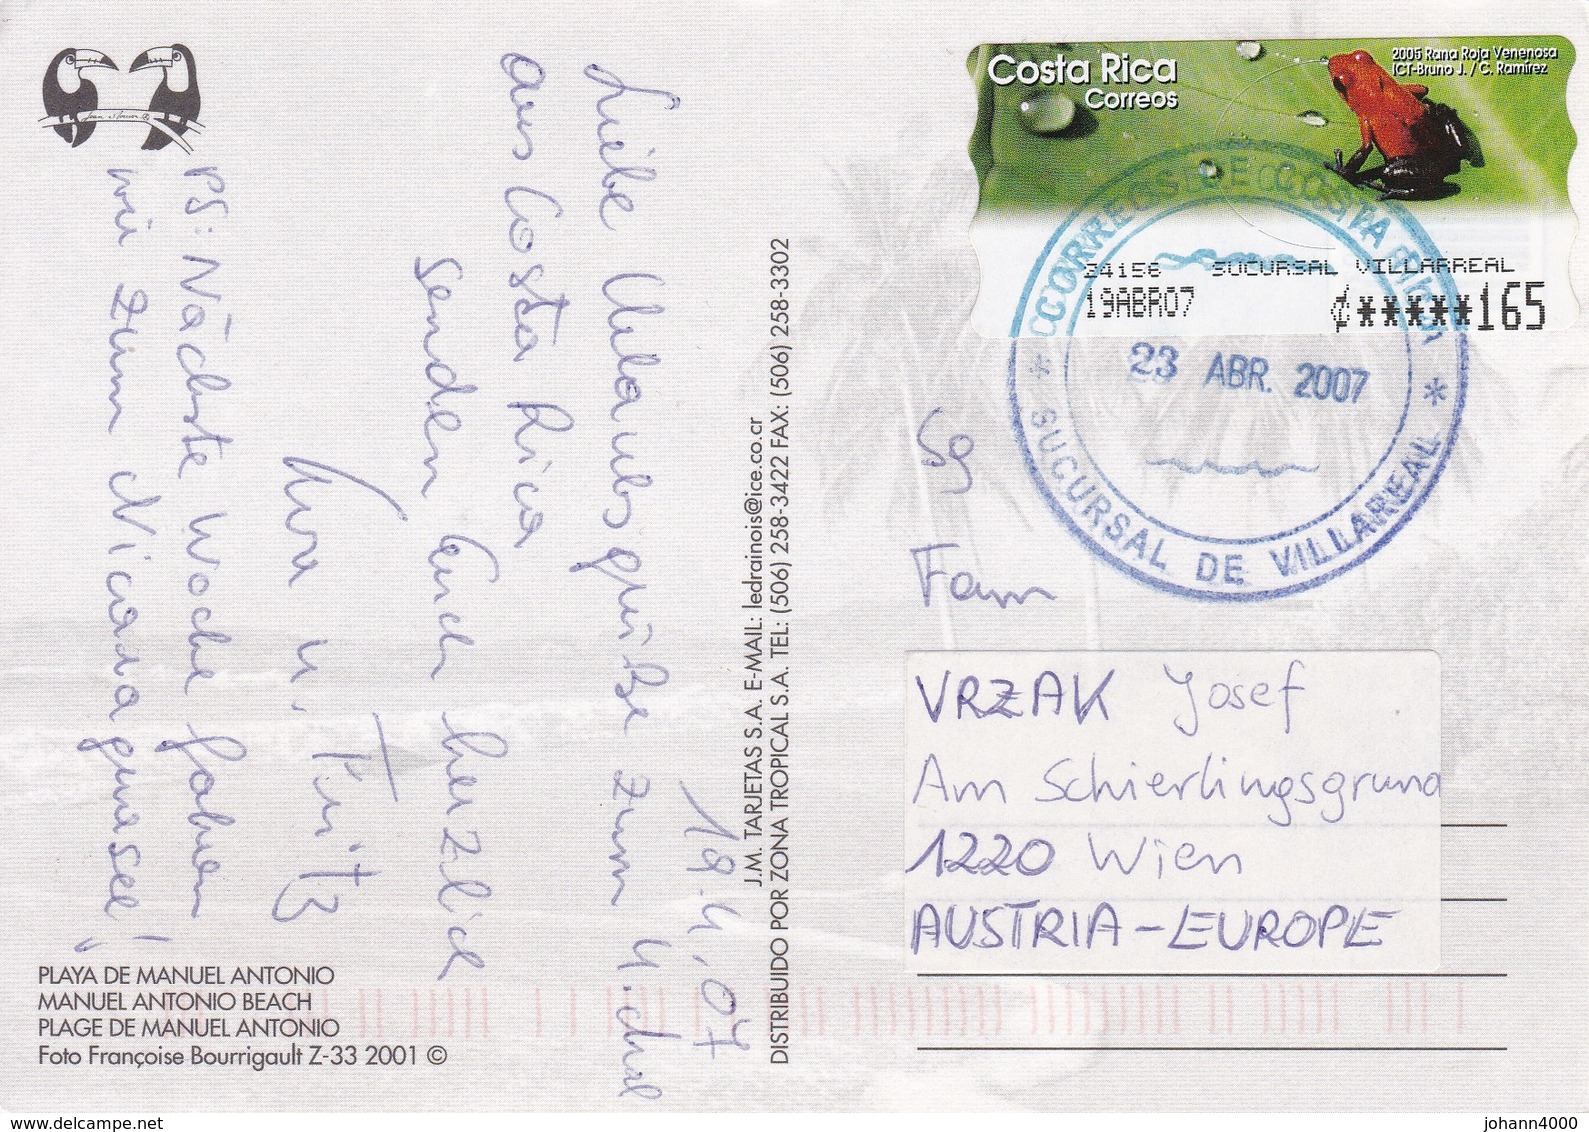 Costa Rica
Correos
2005 Rana Roja Venenosa
ICT-Bruno J. / C. Ramirez
24156 SUCURSAL VILLARREAL
19ABR07 ¢*****165
CORREOS DE COSTA RICA
23 ABR. 2007
* SUCURSAL DE VILLAREAL *
19.4.07
Liebe Urlaubsgrüße zum 4. mal
aus Costa Rica
senden Euch herzlich
u. Fritz
PS: Nächste Woche fahren
wir zum "Nicaraguasee"!
J.M. TARJETAS S.A. E-MAIL: ledrainois@ice.co.cr
DISTRIBUIDO POR ZONA TROPICAL S.A. TEL: (506) 258-3422 FAX: (506) 258-3302
Fam
VRZAK Josef
Am Schierlingsgrund
1220 Wien
AUSTRIA-EUROPE
PLAYA DE MANUEL ANTONIO
MANUEL ANTONIO BEACH
PLAGE DE MANUEL ANTONIO
Foto Françoise Bourrigault Z-33 2001 ©
www.delcampe.net
johann4000